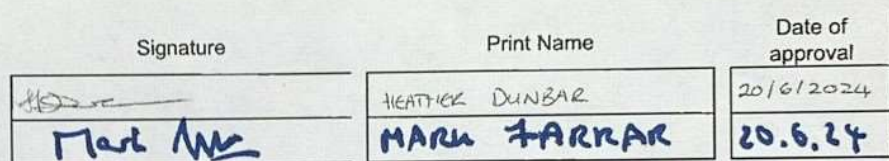 Signature Print Name Date of approval
HEATHER DUNBAR 20/6/2024
Mark MARK FARRAR 20.6.24